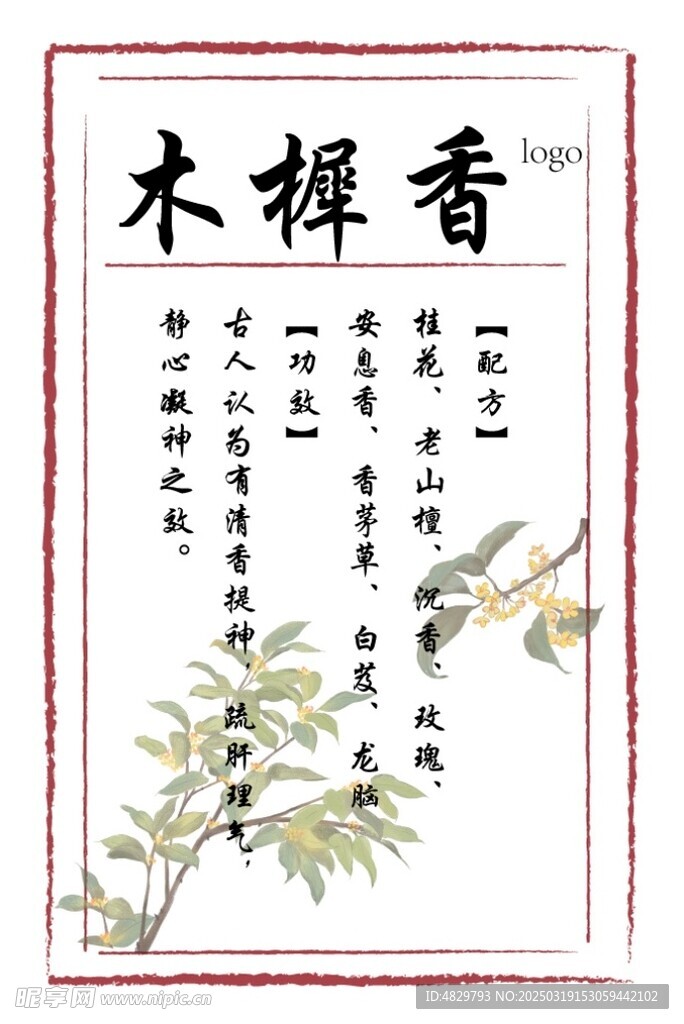 木樨香
logo
【配方】
桂花、老山檀、沉香、玫瑰、
安息香、香茅草、白芨、龙脑
【功效】
古人认为有清香提神，疏肝理气，
静心凝神之效。
昵享网 www.nipic.cn
ID:4829793 NO:20250319153059442102